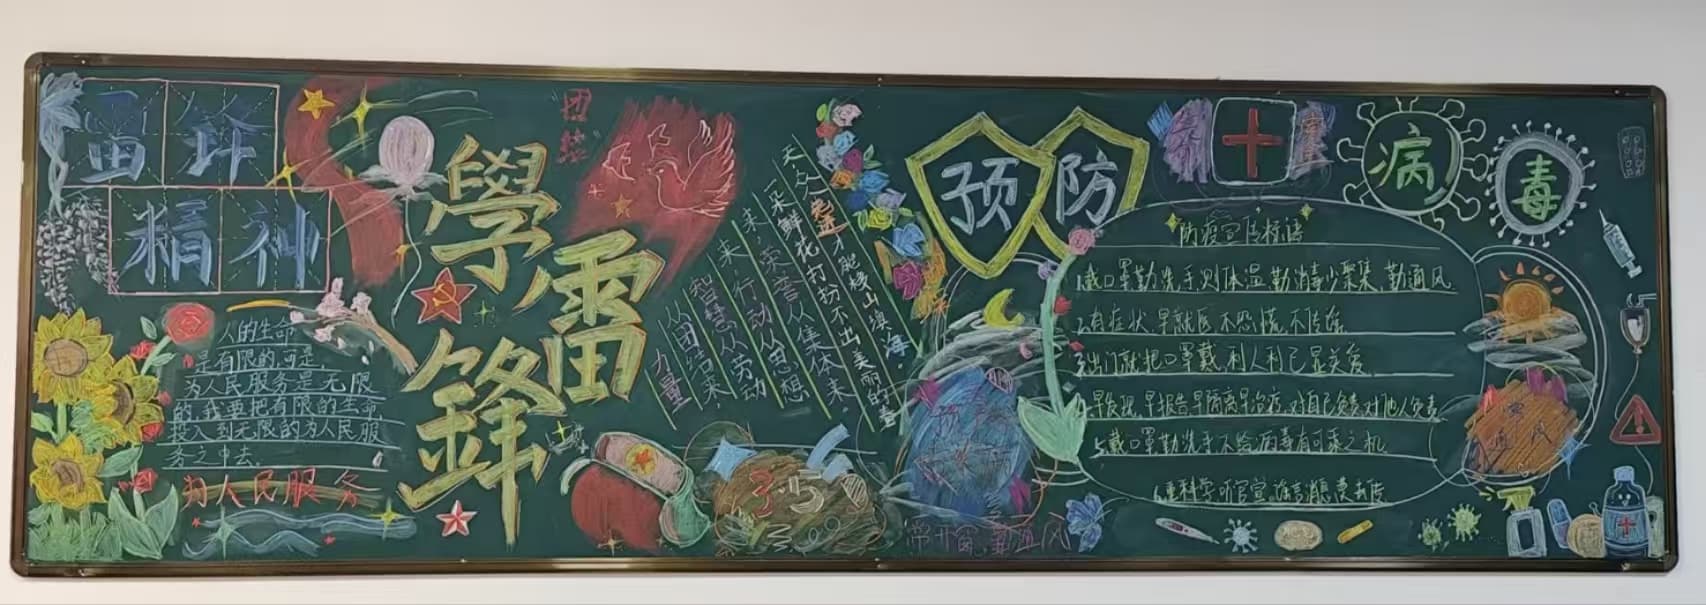 雷锋
精神
人的生命
是有限的,可是,
为人民服务是无限
的,我要把有限的生命
投入到无限的为人民服
务之中去
为人民服务
學
雷
鋒
团
结
力量从团结来,
智慧从劳动
来,行动从思想
来,荣誉从集体来。
一朵鲜花打扮不出美丽的春
天,众人先进才能移山填海。
预防
病毒
防疫宣传标语
1.戴口罩勤洗手,测体温勤消毒,少聚集,勤通风
2.有症状,早就医,不恐慌,不传谣
3.出门就把口罩戴,利人利己显关爱
4.早发现,早报告,早隔离,早治疗,对自己负责,对他人负责
5.戴口罩勤洗手,不给病毒有可乘之机
常开窗,要通风